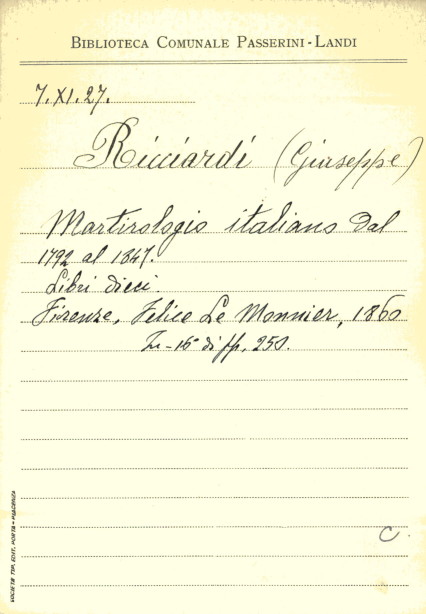 BIBLIOTECA COMUNALE PASSERINI-LANDI
7.XI.27.
Ricciardi (Giuseppe)
Martirologio italiano dal
1792 al 1847.
Libri dieci.
Firenze, Felice Le Monnier, 1860
In-16° di pp, 250.
C.
SOCIETÀ TIP. EDIT. PORTA - PIACENZA